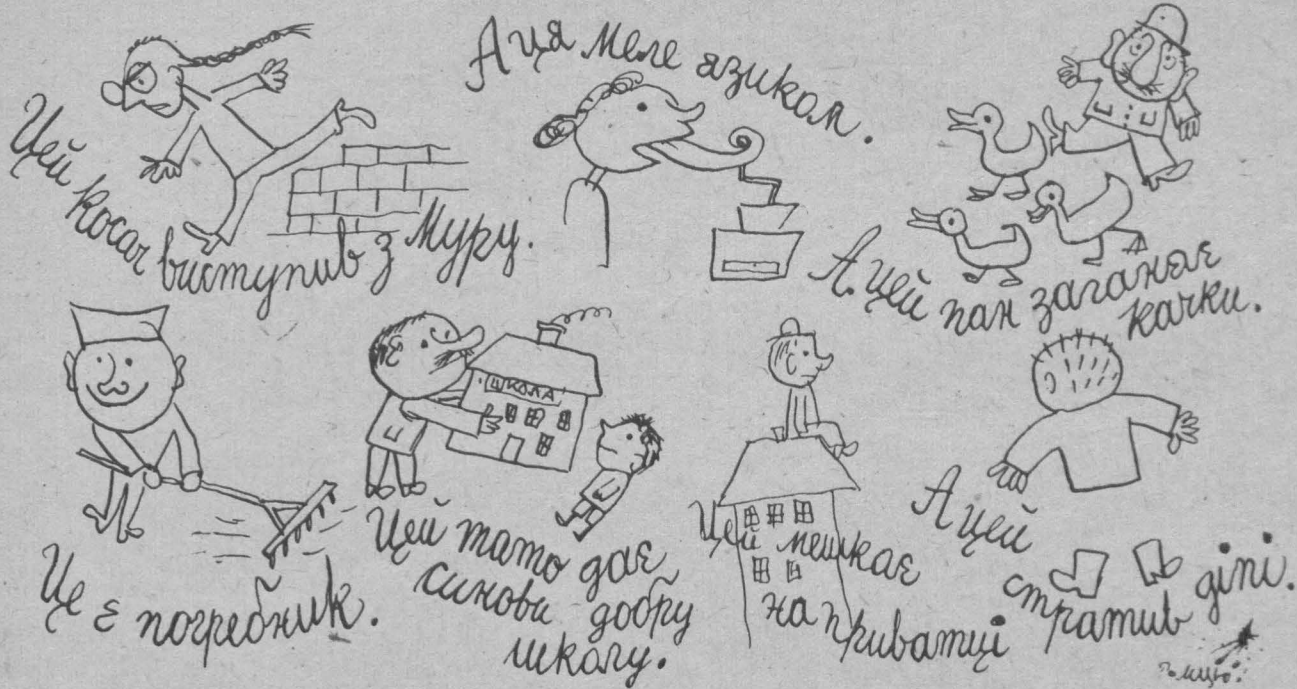 Цей косач
виступив з Муру.
А ця меле язиком.
А цей пан заганяє
качки.
Це є погребник.
ШКОЛА
Цей тато дає
синови добру
школу.
Цей мешкає
на приватці
А цей
стратив діпі.